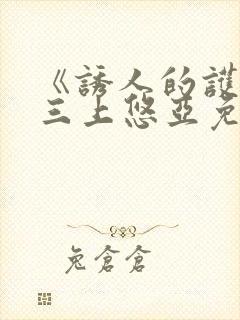 《誘人的護
三上悠亞免
兔倉倉